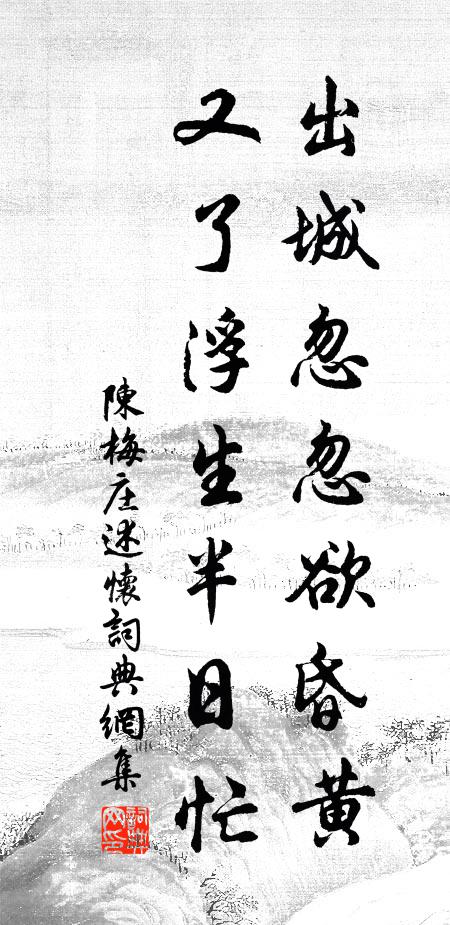 出城忽忽欲昏黃
又了浮生半日忙
陳梅庄述懷詞典網集